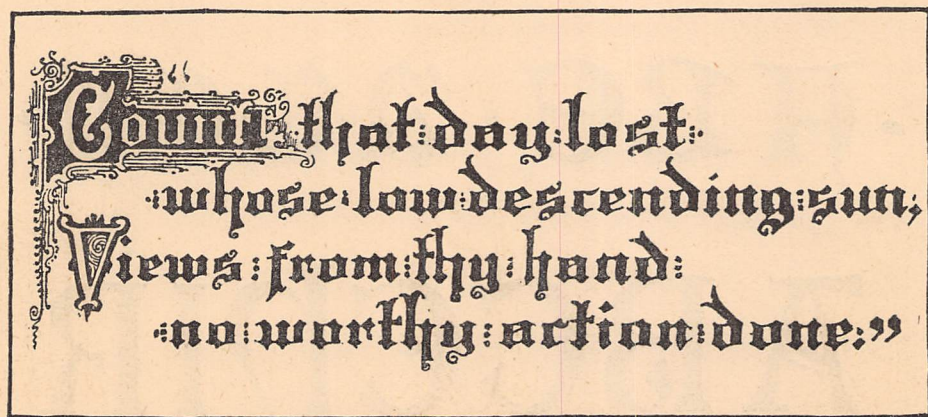 “Count that day lost
whose low descending sun,
Views from thy hand
no worthy action done.”